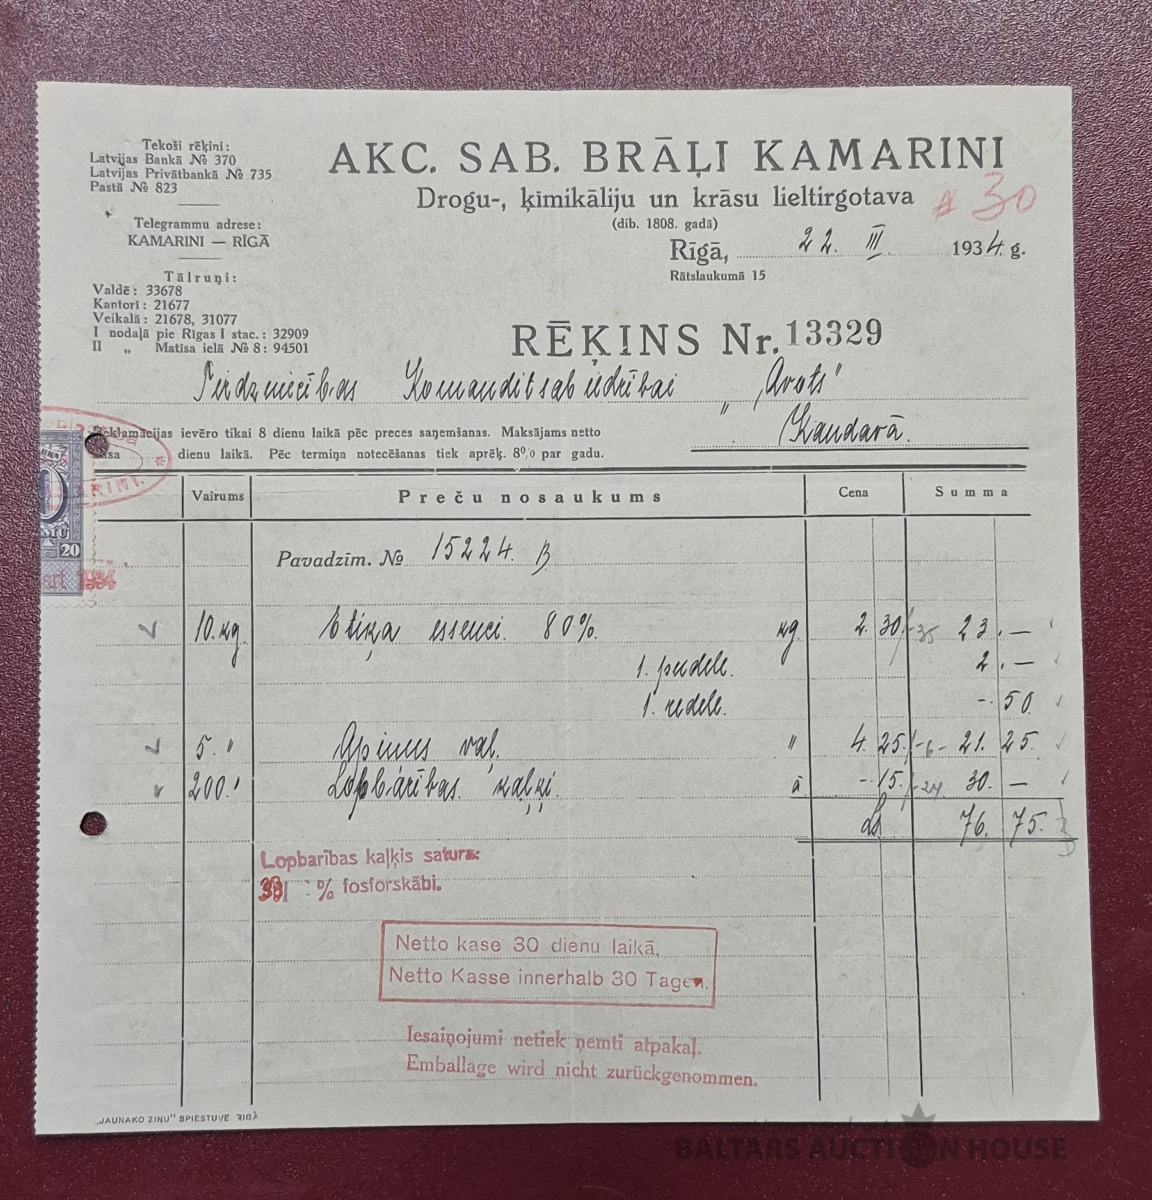 Tekoši rēķini:
Latvijas Bankā № 370
Latvijas Privātbankā № 735
Pastā № 823
Telegrammu adrese:
KAMARINI — RĪGĀ
Tālruņi:
Valdē: 33678
Kantorī: 21677
Veikalā: 21678, 31077
I nodaļā pie Rīgas I stac.: 32909
II „ Matīsa ielā № 8: 94501
AKC. SAB. BRĀĻI KAMARINI
Drogu-, ķīmikāliju un krāsu lieltirgotava
(dib. 1808. gadā)
30
Rīgā, 22. III 1934. g.
Rātslaukumā 15
RĒĶINS Nr. 13329
Tirdzniecības Komanditsabiedrībai „Avots"
Kandavā.
Reklamācijas ievēro tikai 8 dienu laikā pēc preces saņemšanas. Maksājams netto
dienu laikā. Pēc termiņa notecēšanas tiek aprēķ. 8% par gadu.
Vairums Preču nosaukums Cena Summa
Pavadzīm. № 15224. B
10. kg. Etiķa essenci. 80%. kg 2. 30. -35 23. —
1. pudele. 2. —
1. redele. -. 50.
5. " Apiņus vaļ. " 4. 25. -6- 21. 25.
200. " Lopbarības kaļķi. à -. 15. -24 30. —
Ls 76. 75.
Lopbarības kaļķis satura:
% fosforskābi.
Netto kase 30 dienu laikā.
Netto Kasse innerhalb 30 Tagen.
Iesaiņojumi netiek ņemti atpakaļ.
Emballage wird nicht zurückgenommen.
20
1934
„JAUNĀKO ZIŅU" SPIESTUVE RĪGĀ
BALTARS AUCTION HOUSE